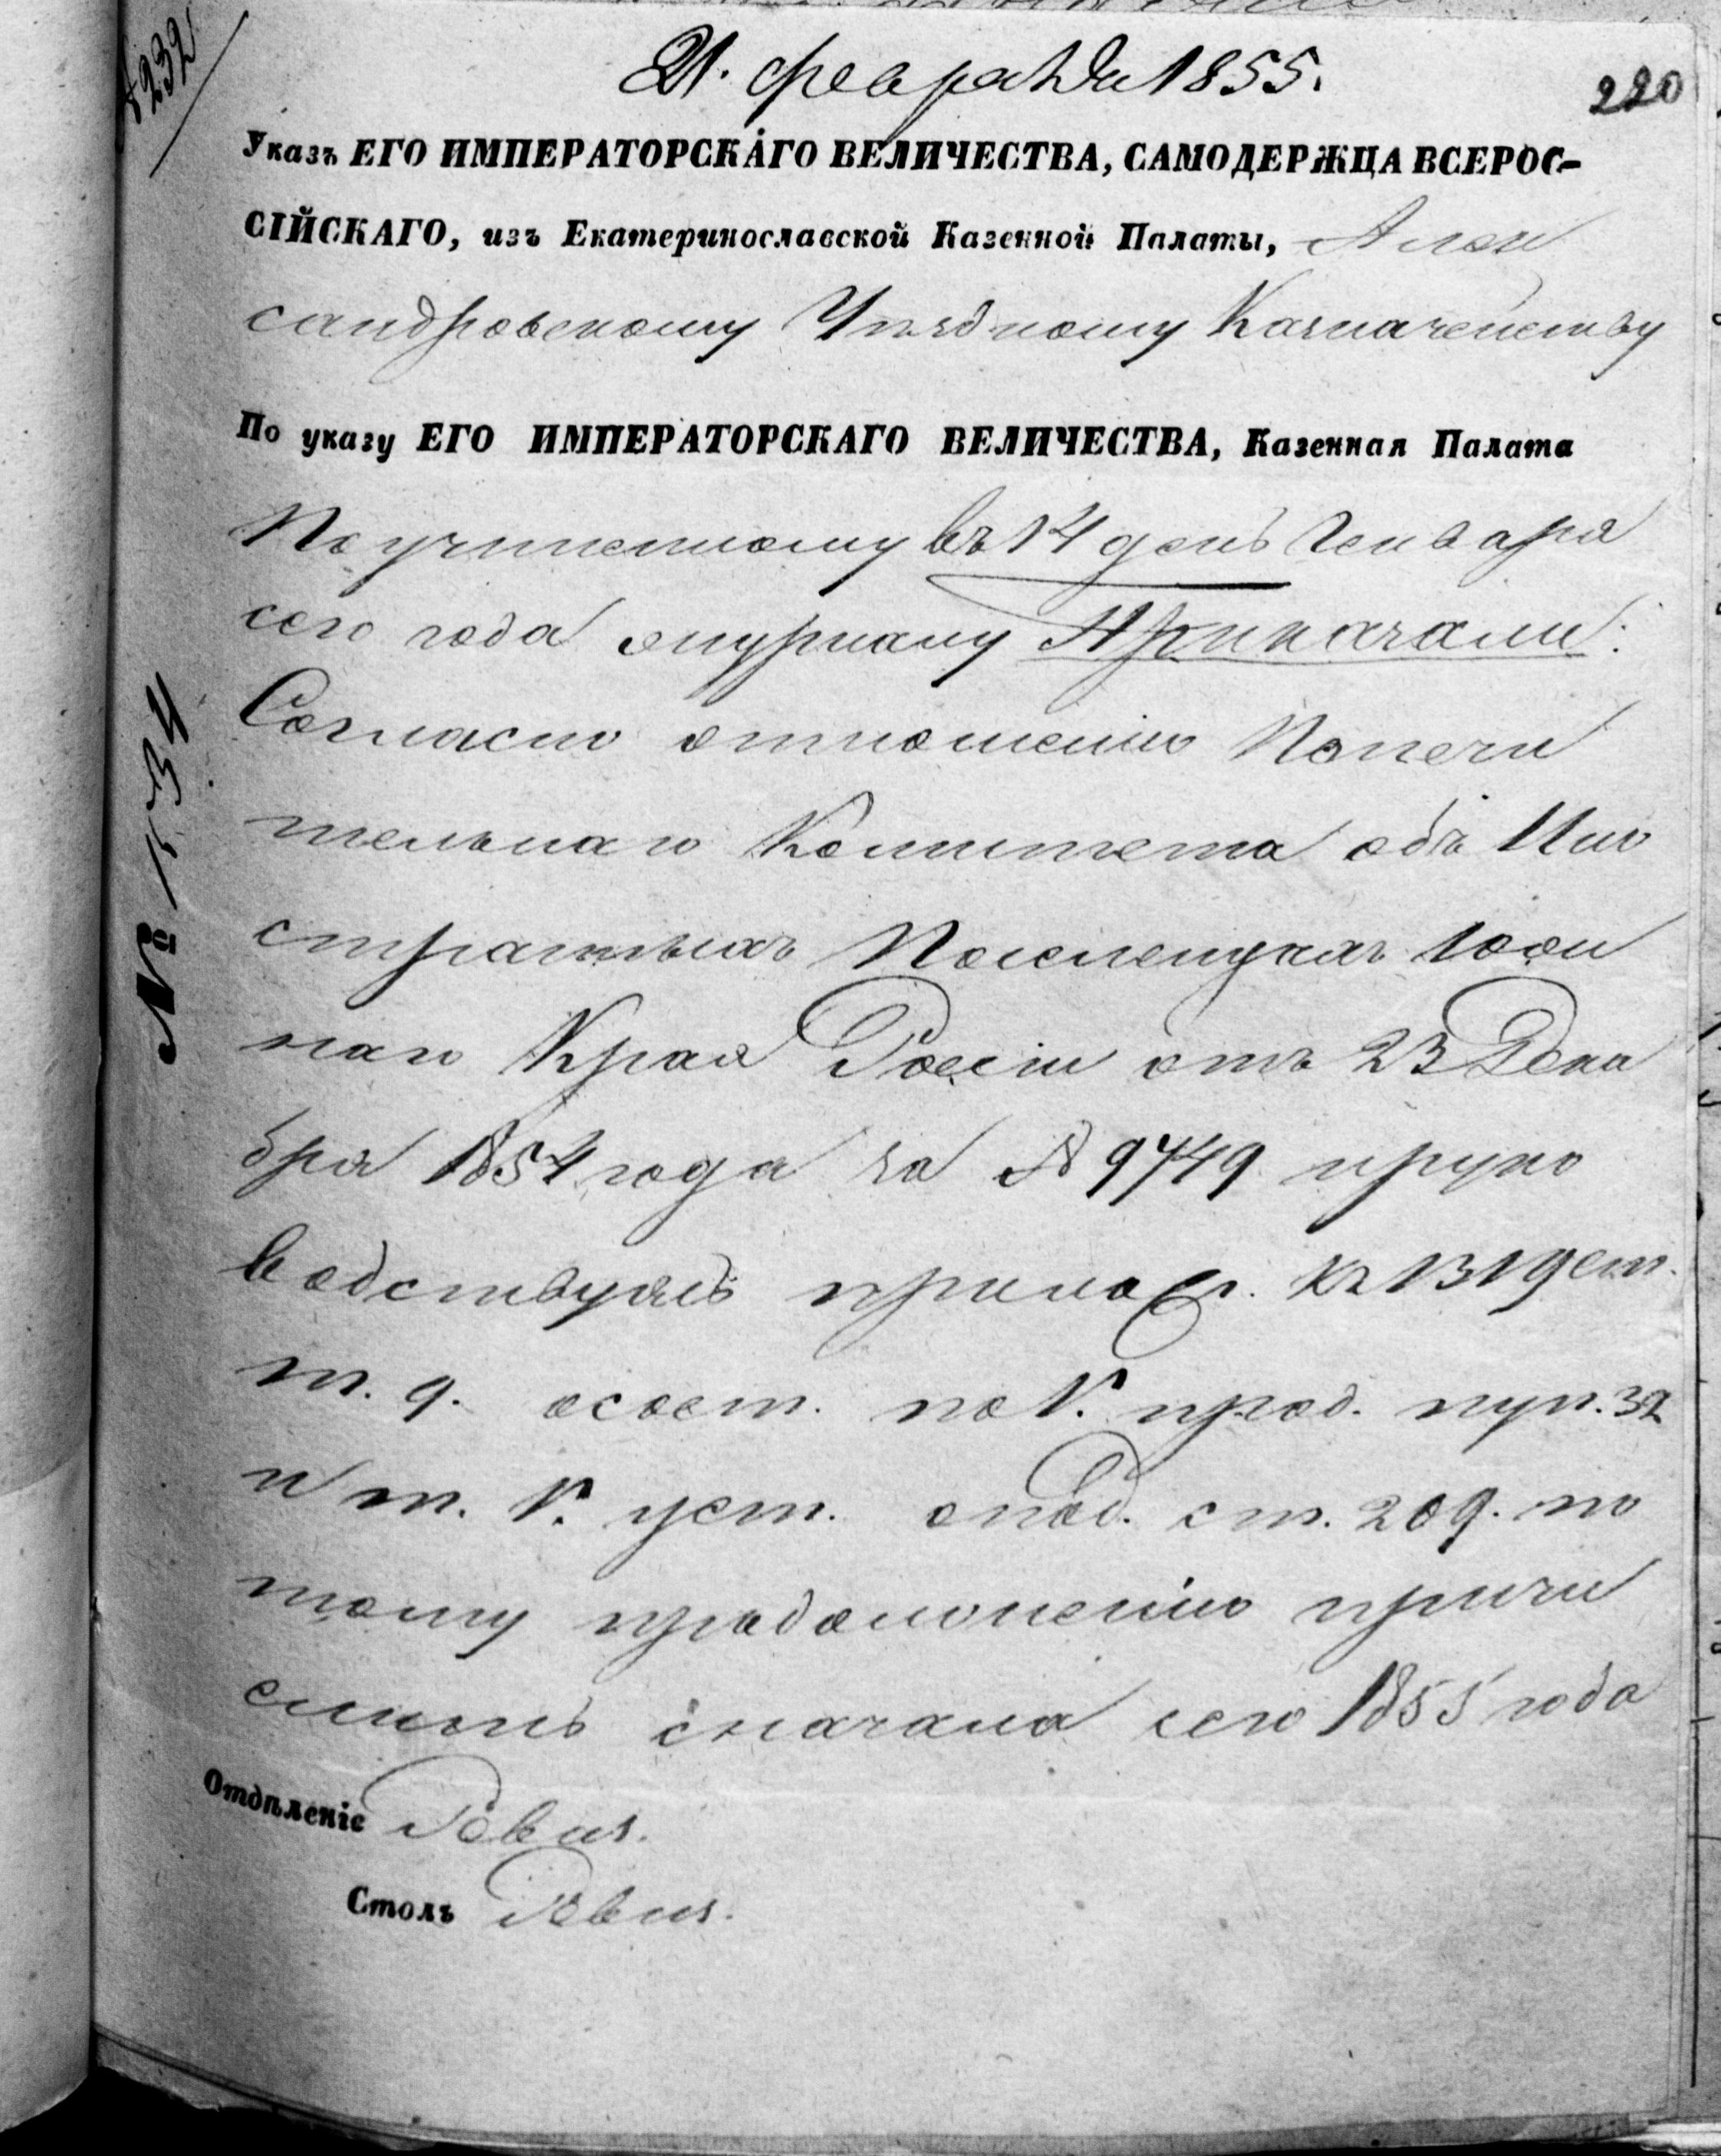 21. февраля 1855.
220
№ 232
Указъ ЕГО ИМПЕРАТОРСКАГО ВЕЛИЧЕСТВА, САМОДЕРЖЦА ВСЕРОС-
СІЙСКАГО, изъ Екатеринославской Казенной Палаты, Алек
сандровскому Уѣздному Казначейству
По указу ЕГО ИМПЕРАТОРСКАГО ВЕЛИЧЕСТВА, Казенная Палата
По учиненному въ 14 день Генваря
сего года журналу Приказали:
Согласно отношенію Попечи
тельнаго Комитета объ Ино
странныхъ Поселенцахъ Южи
наго Края Россіи отъ 23 Дека
бря 1854 года за № 9749 и руко
водствуясь прилож. къ 1319 ст.
т. 9. о сост. по V. прод. пун. 32
и т. V. уст. о под. ст. 209. по
тому продолженію причи
слить сначала сего 1855 года
Отдѣленіе Ревиз.
Столъ Ревиз.
№